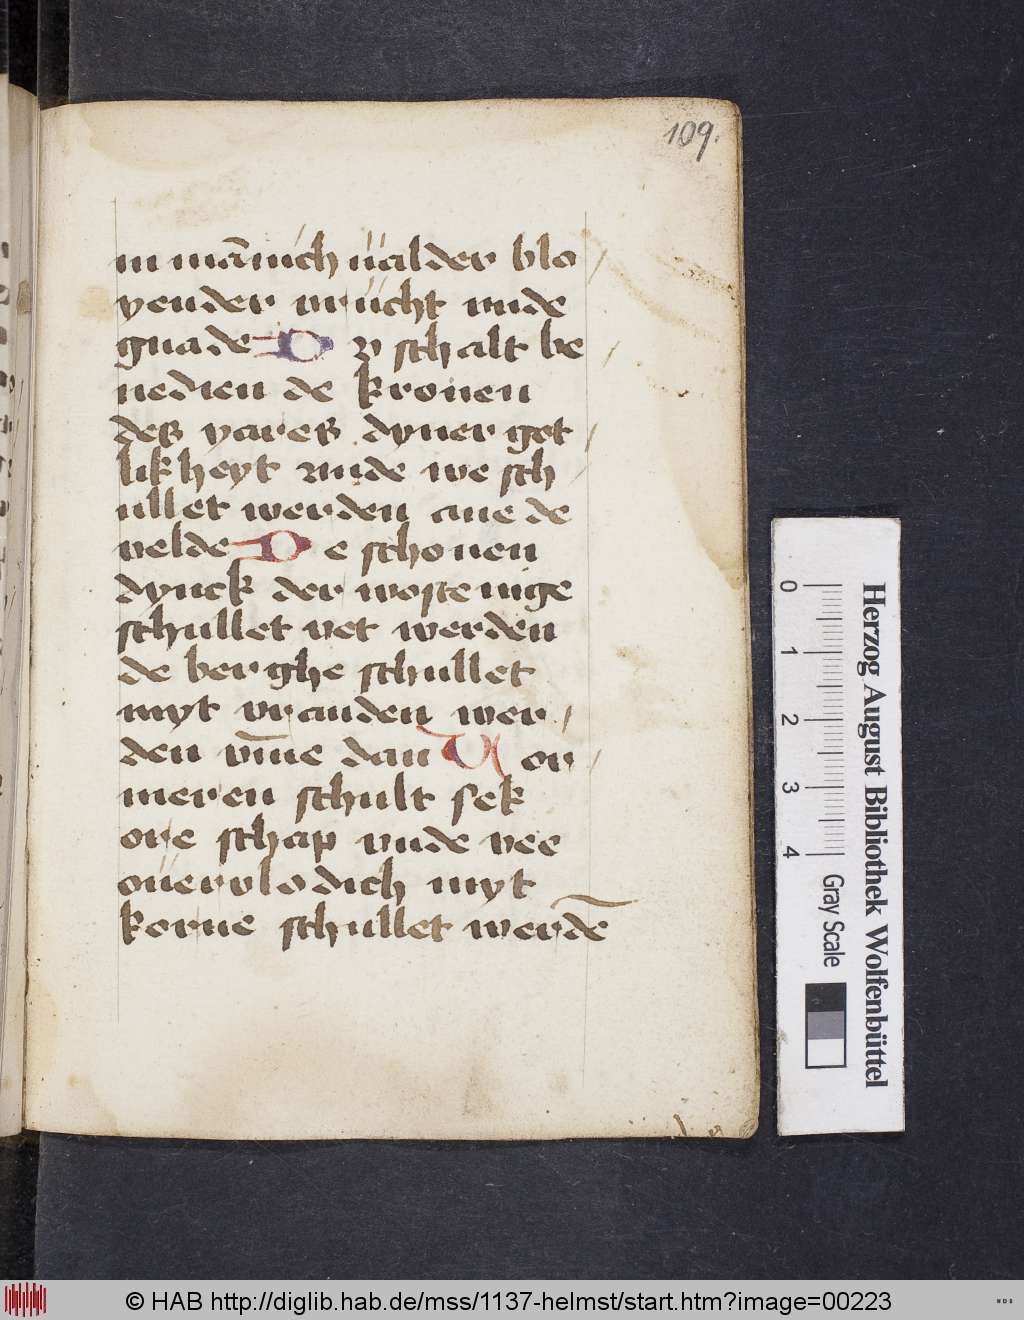 109.
in mānich ualder blo
yender vrücht unde
gnade D v schalt be
nedien de kronen
des yares dyner got
likheyt vnde we sch
ullet werden aue de
velde D e schonen
dynck der wostenige
schullet vet werden
de berghe schullet
myt vrauden wer
den vm̄e dan U or
meren schult sek
ore schap vnde vee
ouervlodich myt
korne schullet werdē
0 1 2 3 4
Gray Scale
Herzog August Bibliothek Wolfenbüttel
© HAB http://diglib.hab.de/mss/1137-helmst/start.htm?image=00223